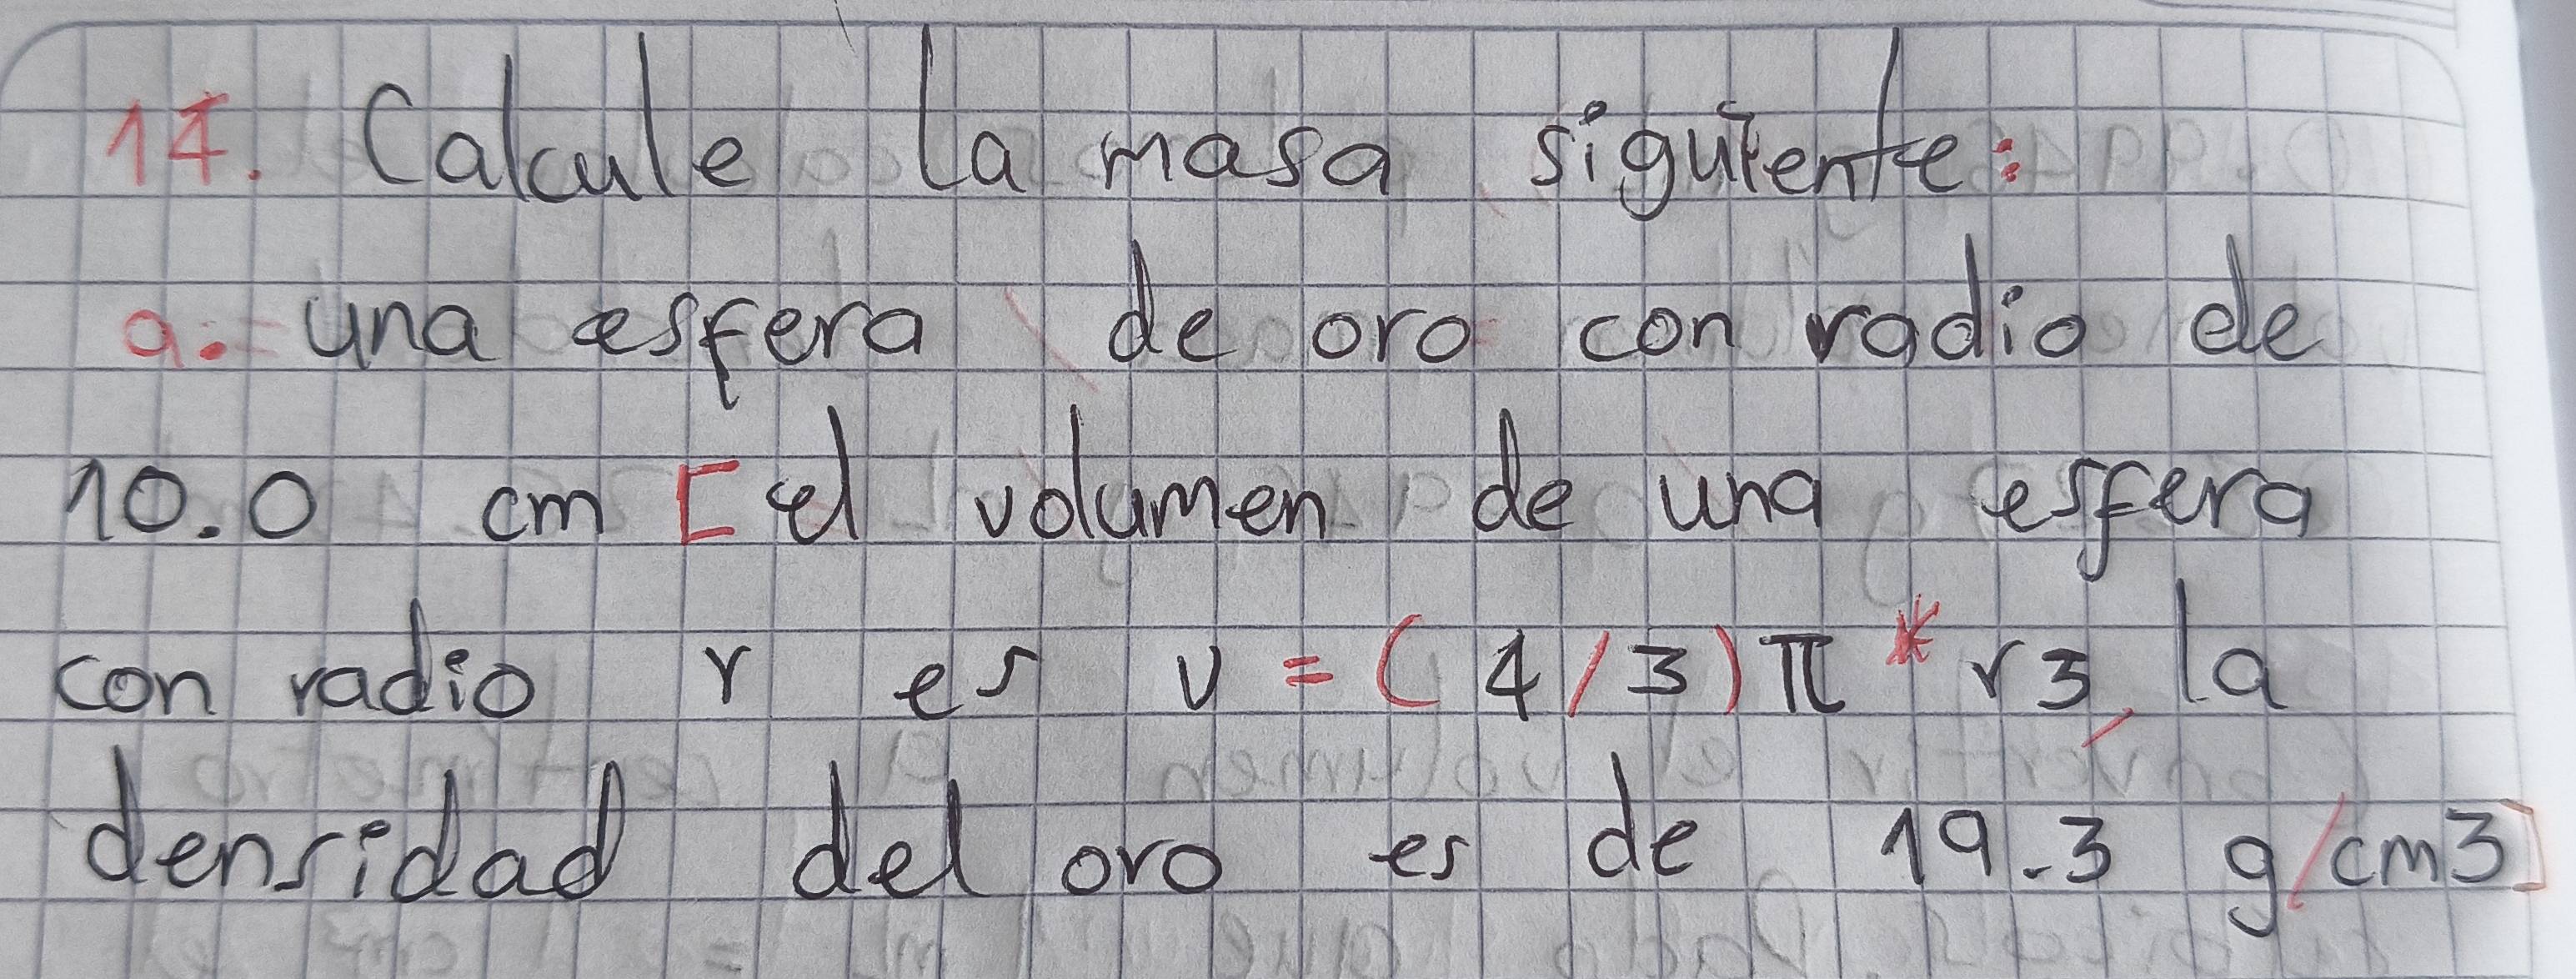 14. Calcule la masa siguiente:
a. una esfera de oro con radio de
10.0 cm [el volumen de una esfera
con radio r es v = (4/3)π * r3, la
densidad del oro es de 19.3 g/cm3]